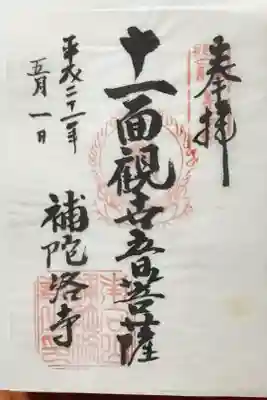 奉拝
十一面観世音菩薩
平成二十一年
五月一日
補陀洛寺